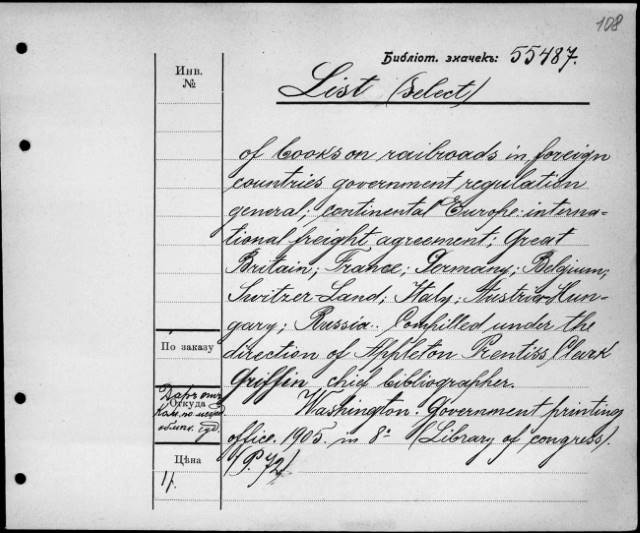 108
Библіот. значекъ: 55487.
Инв.
№
List (select)
of books on railroads in foreign
countries government regulation
general; continental Europe: interna-
tional freight agreement; Great
Britain; France; Germany; Belgium;
Switzer-Land; Italy; Austria-Hun-
gary; Russia. Compilled under the
direction of Appleton Prentiss Clark
Griffin chief bibliographer.
Washington: Government printing
office. 1905. in 8° (Library of congress).
(P. 72)
По заказу
Откуда
Цѣна